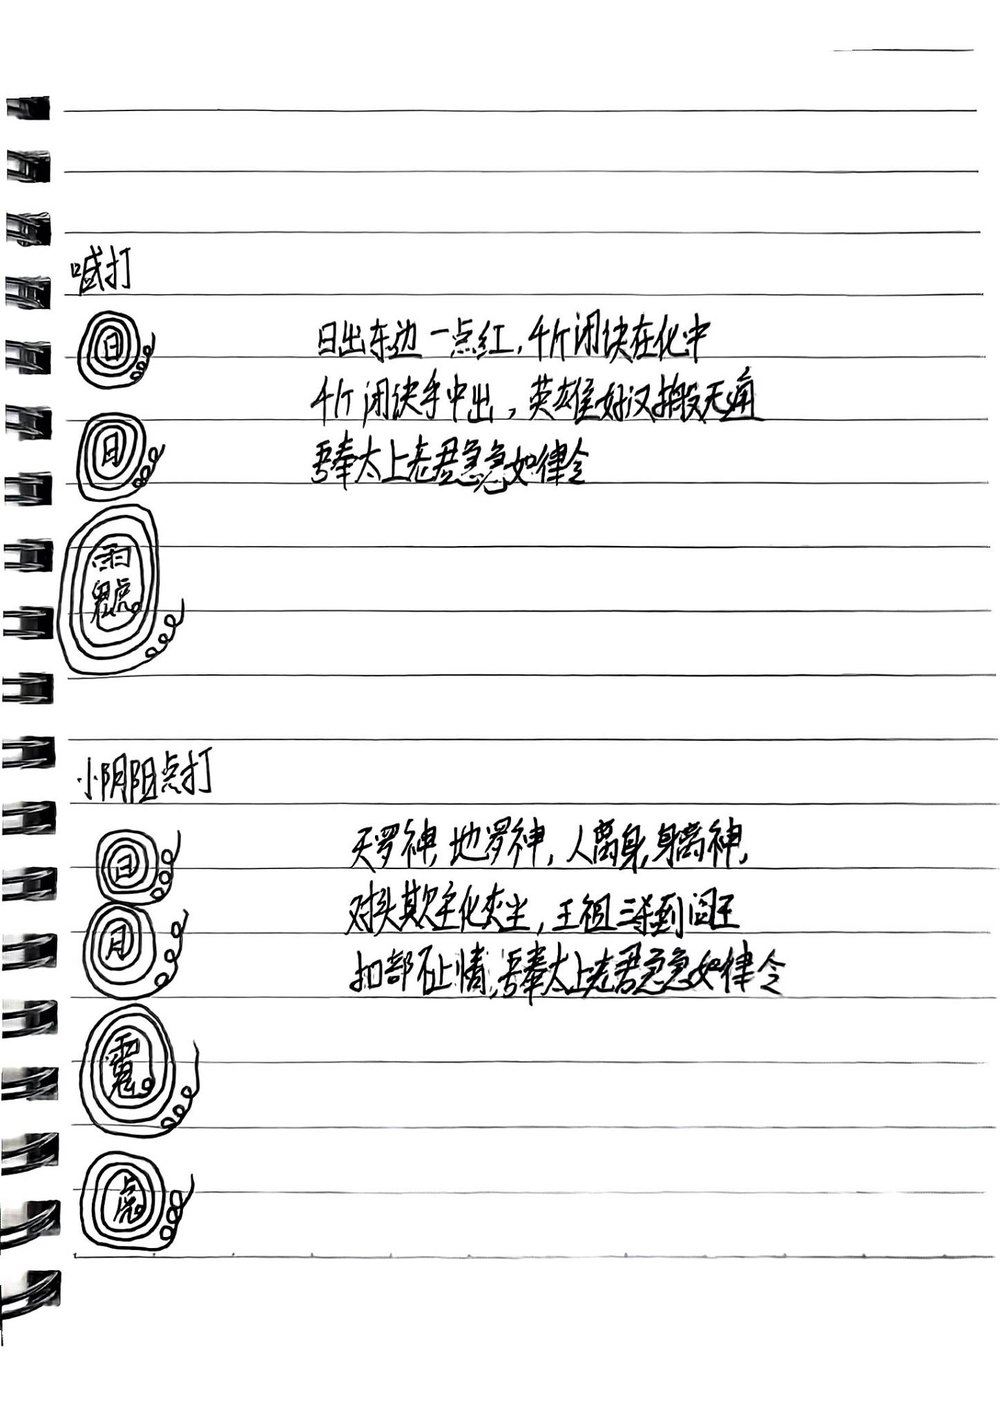 喊打
日
日出东边一点红，千斤闭诀在化中
千斤闭诀手中出，英雄好汉搬无痛
日
吾奉太上老君急急如律令
雨
鬼虎
小阴阳点打
日
天罗神，地罗神，人离身，身离神，
月
对头欺主化灰尘，王祖三等到阎王
扣部不上情，吾奉太上老君急急如律令
虎